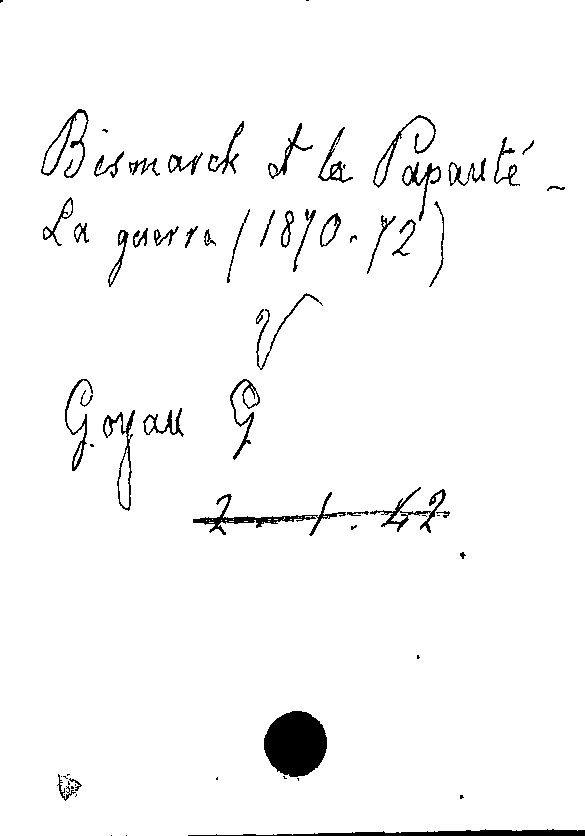 Bismarck et la Papauté -
La guerra (1870-72)
V
Goyau G
2 - 1. 42